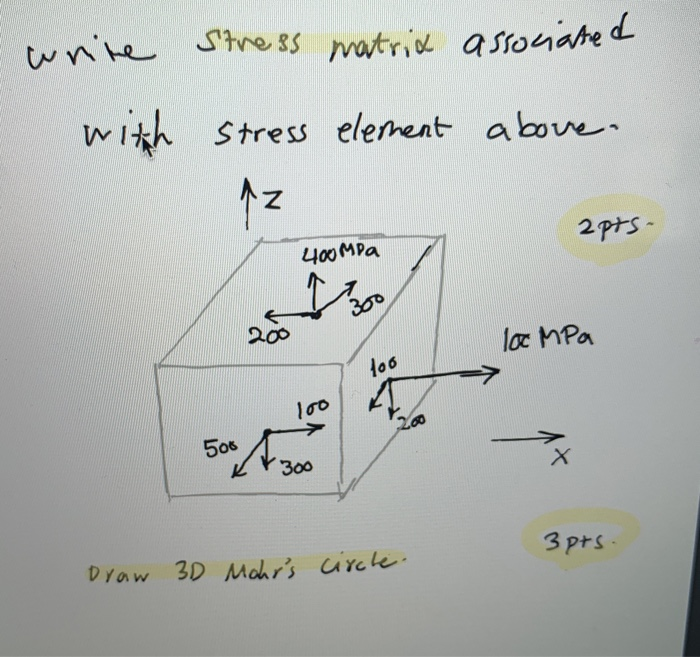 write stress matrix associated
with stress element above.
↑z
2pts.
400 MPa
300
200
100 MPa
100
100
200
500
300
X
3pts.
Draw 3D Mohr's circle.